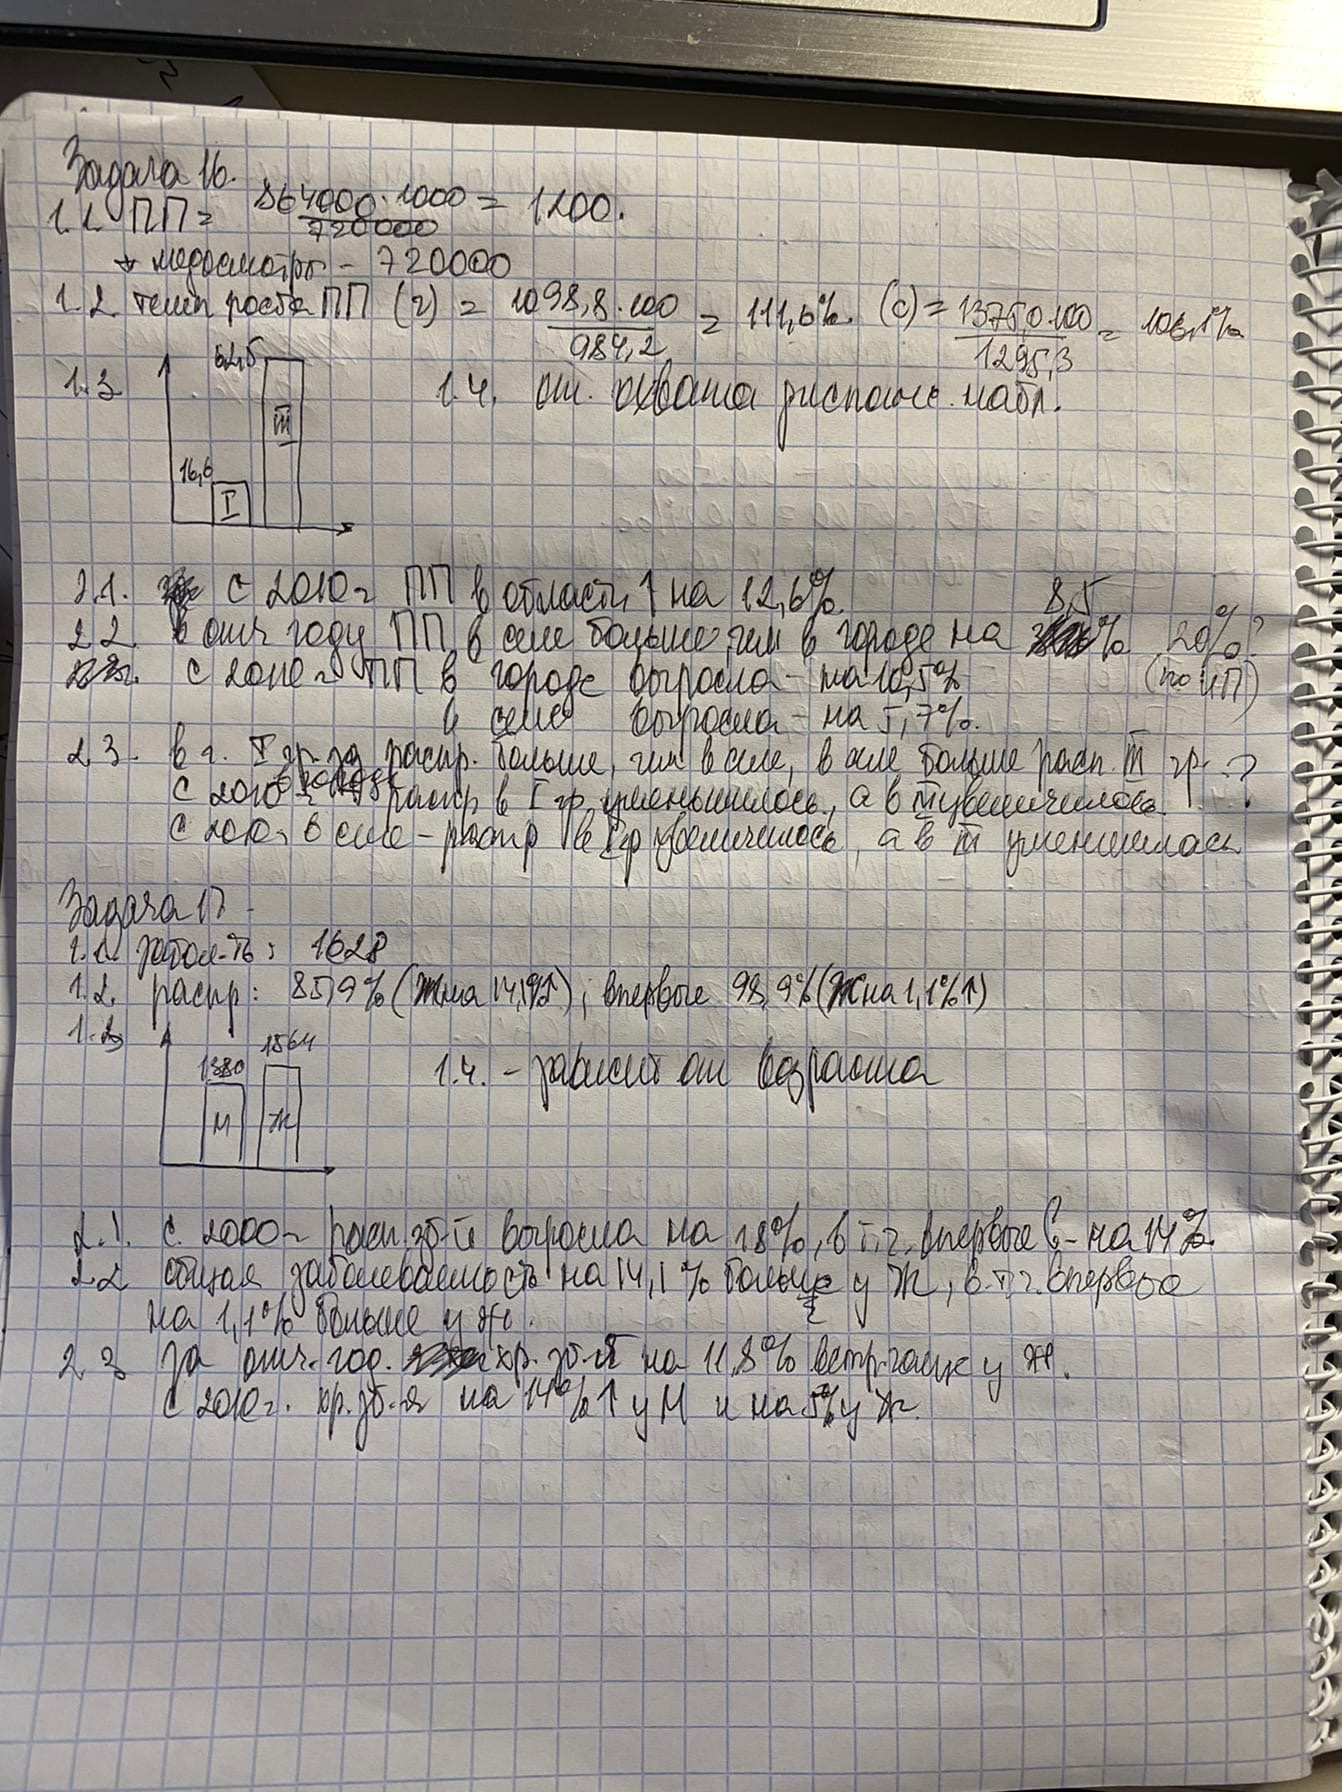 Задача 16.
1.1 ПП = 864000·1000 = 1200.
720000
+ медосмотры - 720000
1.2 темп роста ПП (г) = 1098,8·100 = 111,6%. (с) = 1375,0·100 = 106,1%
984,2 1295,3
62,5
1.3 1.4. от. охвата диспанс. набл.
III
16,6
I
2.1. с 2010г ПП в области ↑ на 12,6%. 8,5
2.2 в отч году ПП в селе больше, чем в городе на % 20%?
с 2010г ПП в городе выросла - на 10,5% (по ИП)
в селе выросла - на 5,7%.
2.3. в г. I гр. распр. больше, чем в селе, в селе больше расп. III гр. ?
в городе
с 2010г распр в I гр. уменьшилось, а в III увеличилось. ?
с 2010г в селе - распр в I гр увеличилось, а в III уменьшилась
Задача 17
1.1. забол-ть: 1628
1.2. распр: 85,9% (Ж на 14,1%↑); впервые 98,9% (Ж на 1,1%↑)
1.3 1564
1380 1.4. - зависит от возраста
М Ж
2.1. с 2000г расп. зб-й выросла на 18%, в т.ч. впервые - на 14%.
2.2 общая заболеваемость на 14,1% больше у Ж, в т.ч. впервые
на 1,1% больше у ж.
2.3 за отч. год. хр. зб-я на 11,8% встр. чаще у ж.
с 2010г. хр. зб-я на 14% ↑ у М и на 5% у Ж.